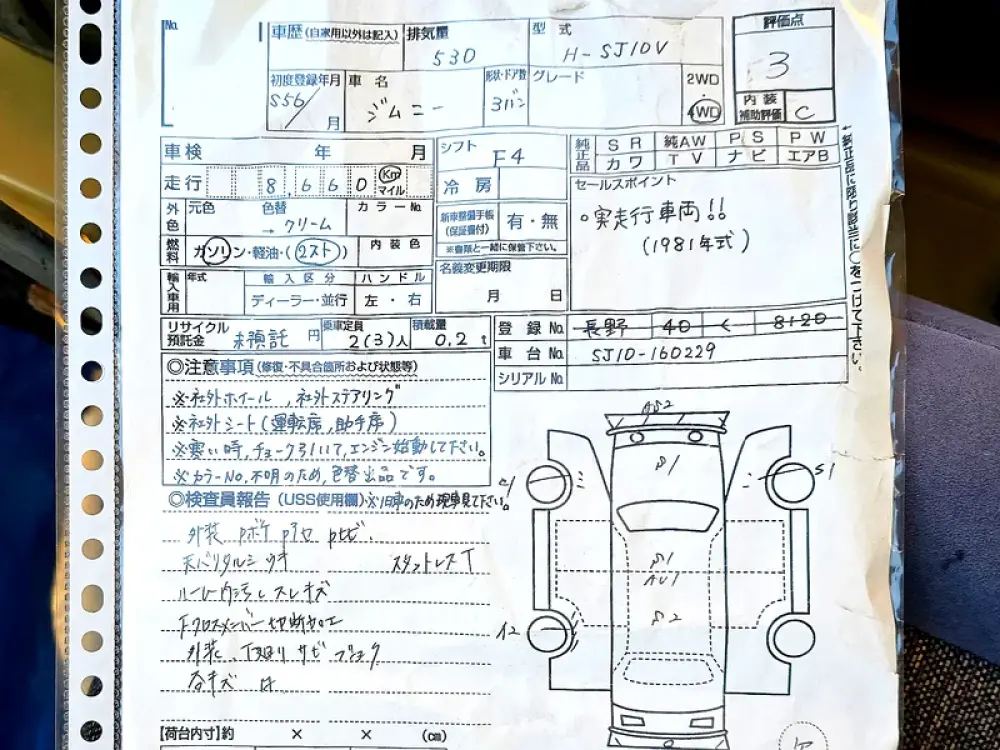 No.
車歴(自家用以外は記入) 排気量 530 型式 H-SJ10V 評価点 3
初度登録年月 S56/ 月 車名 ジムニー 形状・ドア数 3バン グレード 2WD・4WD 内装補助評価 C
車検 年 月 シフト F4 純正品 SR 純AW PS PW
カワ TV ナビ エアB
走行 8,660 Km マイル 冷房
セールスポイント
外色 元色 色替 → クリーム カラーNo. 新車整備手帳(保証書付) 有・無
○実走行車両!!
(1981年式)
燃料 ガソリン・軽油・(2スト) 内装色 ※書類と一緒に保管下さい。
輸入車用 年式 輸入区分 ハンドル 名義変更期限
ディーラー・並行 左・右 月 日
↑純正品に限り該当に○をつけて下さい。
リサイクル預託金 未預託 円 乗車定員 2(3)人 積載量 0.2t 登録No. 長野 40 く 8120
車台No. SJ10-160229
シリアルNo.
◎注意事項(修復・不具合箇所および状態等)
※社外ホイール、社外ステアリング
※社外シート(運転席,助手席)
※寒い時,チョーク引いて,エンジン始動して下さい。
※カラーNo,不明のため,色替出品です。
◎検査員報告(USS使用欄)※旧車のため現車見て下さい!
外装 Pボケ Pハセ Pヒビ.
スタットレスT
ルーム内汚レ スレ キズ
Fクロスメンバー切断加工
外装、下廻り サビ
各キズ
【荷台内寸】約 × × (cm)
S1
A2